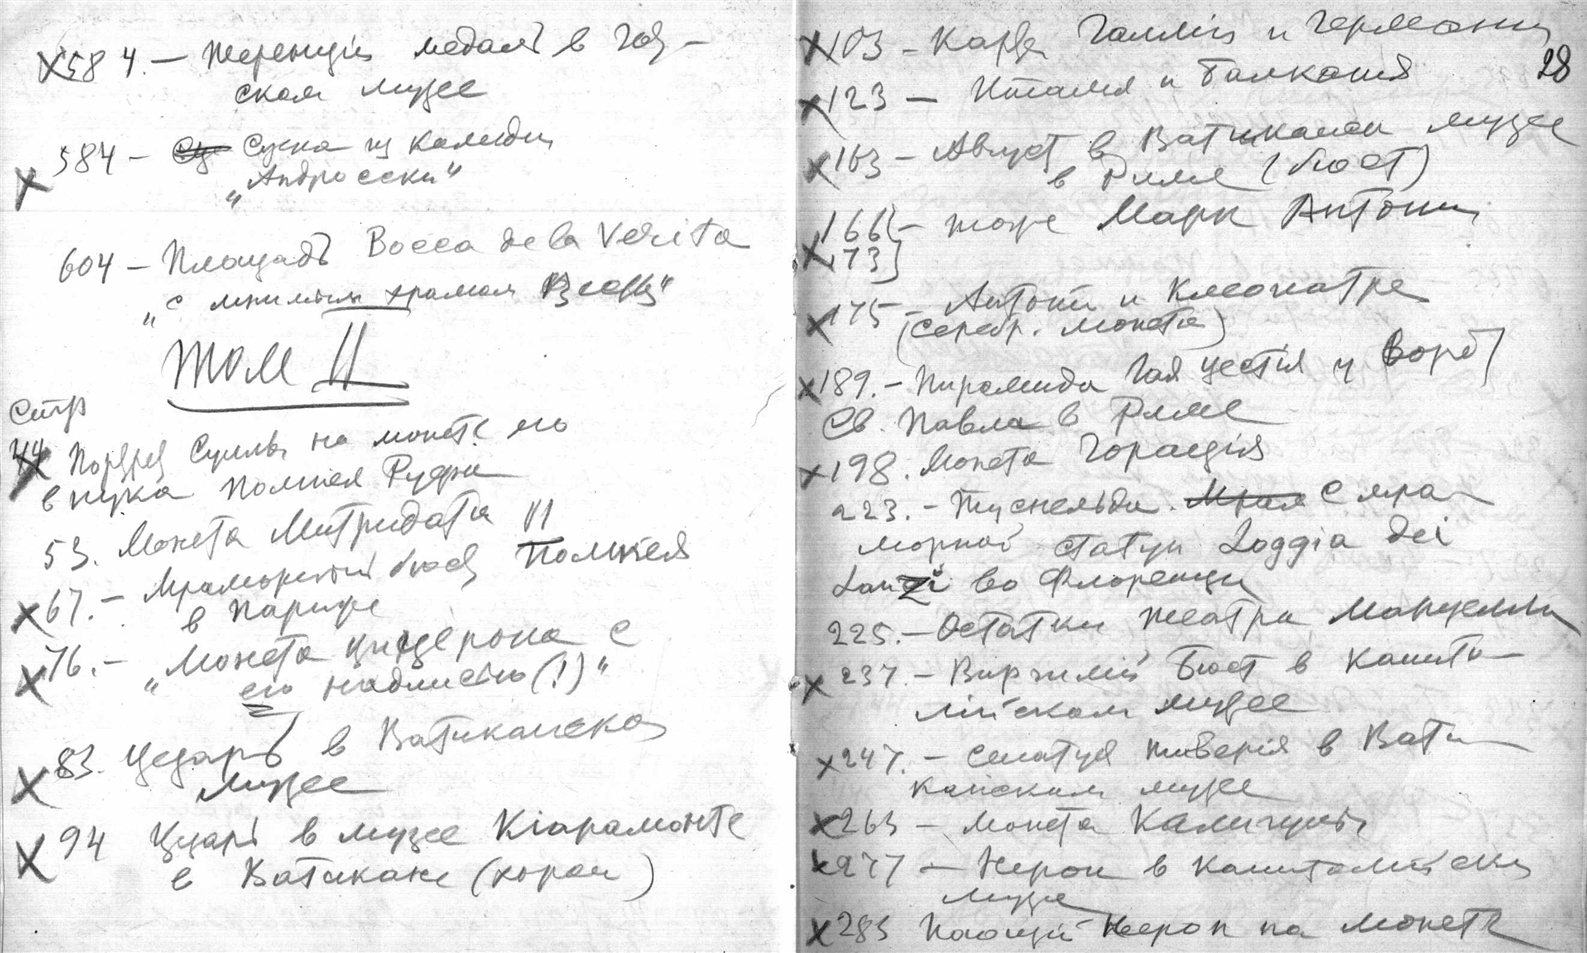 584. — Теренцiй медаль в Гот-
ском музее
584 — Сцена из комедии
"Андросски"
604 — Площадь Bocca de la Verita
"с мнимым храмом Весты"
Том II
Стр
44 Портрет Суллы на монете его
внука Помпея Руфа
53. Монета Митридата VI
67. — Мраморный бюст Помпея
в Париже
76. — "Монета Цицерона с
его надписью (!)"
83. Цезарь в Ватиканском
музее
94 Цезарь в музее Кiарамонте
в Ватикане (хорош)
28
103 — Карта Галлии и Германии
123 — Италия и Балкания
163 — Август в Ватиканском музее
в Риме (бюст)
166 — тоже Марк Антоний
173
175 — Антоний и Клеопатра
(серебр. монета)
189. — Пирамида Гая Цестiя у ворот
Св. Павла в Риме
198. Монета Горацiя
223. — Туснельда. С мра-
морной статуи Loggia dei
Lanzi во Флоренции
225. — Остатки театра Марцелла
237. — Виргилий Бюст в Капито-
лийском музее
247. — Статуя Тиверiя в Вати-
канском музее
263 — Монета Калигулы
277 — Нерон в Капитолийском
музее
283 Поющий Нерон на монете